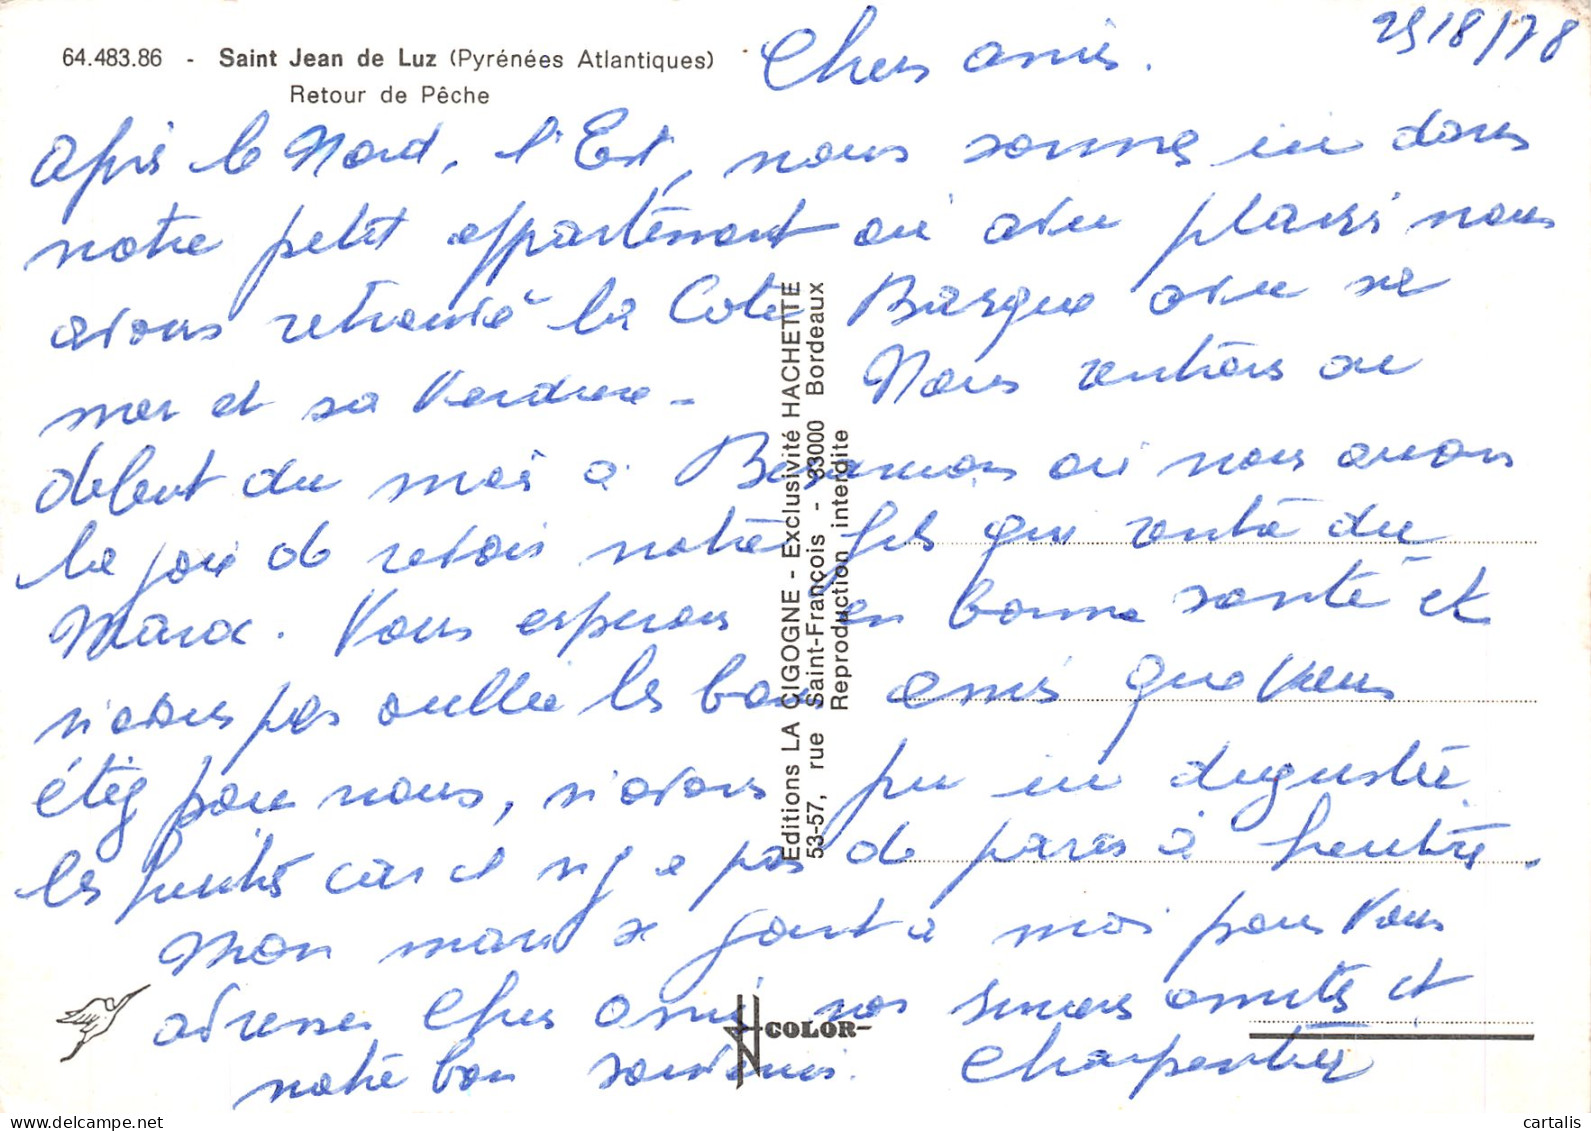 64.483.86 - Saint Jean de Luz (Pyrénées Atlantiques)
Retour de Pêche
29/8/78
Chers amis.
Après le Nord, l'Est, nous sommes ici dans
notre petit appartement où avec plaisir nous
avons retrouvé la Cote Basque avec sa
mer et sa verdure - Nous rentrons au
début du mois à où nous aurons
la joie de revoir notre fils qui rentre du
Maroc. Vous esperons en bonne santé et
n'avons pas oublié les bons amis que vous
étiez pour nous, n'avons pu ici déguster
les car il n'y a pas de à
Mon mari se joint à moi pour vous
adresser Chers amis nos sincères amitiés et
notre bon souvenir. Charpentier
Editions LA CIGOGNE - Exclusivité HACHETTE
53-57, rue Saint-François - 33000 Bordeaux
Reproduction interdite
COLOR
cartalis.com